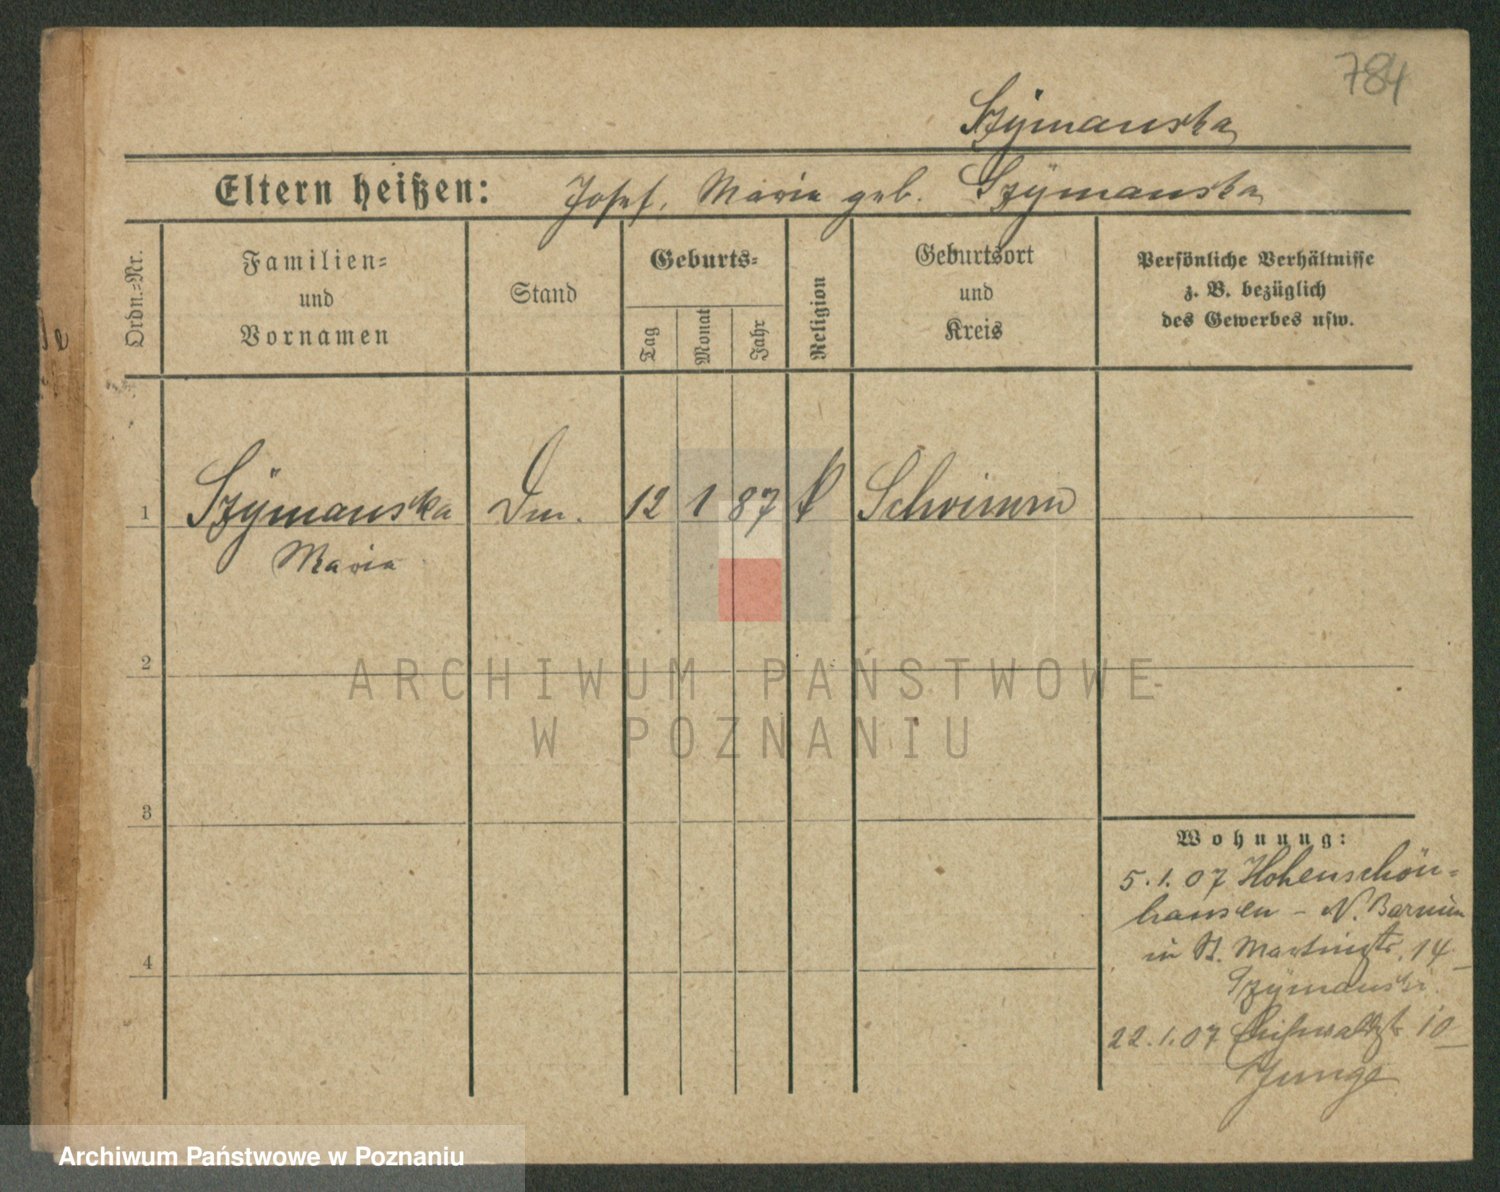 784
Szÿmanska
Eltern heißen: Josef, Maria geb. Szÿmanska
Ordn.-Nr.
Familien-
und
Vornamen
Stand
Geburts-
Tag
Monat
Jahr
Religion
Geburtsort
und
Kreis
Persönliche Verhältnisse
z. B. bezüglich
des Gewerbes usw.
1 Szÿmanska 12 1 87 k Schrimm
Maria
2
3
4
Wohnung:
5.1.07 Hohenschön-
hausen - N. Barnim
in St. Martinstr. 14
Szÿmanski
22.1.07 10
Junge
ARCHIWUM PAŃSTWOWE
W POZNANIU
Archiwum Państwowe w Poznaniu